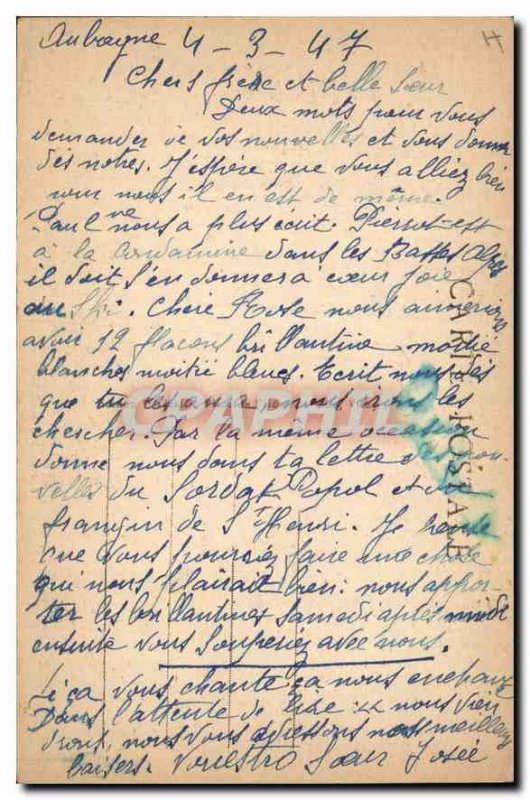 Aubagne 4-3-47
Chers frère et belle Sœur
Deux mots pour vous
demander de vos nouvelles et vous donner
des notres. J'éspère que vous alliez bien
pour nous il en est de même.
Paul ne nous a plus écrit. Pierrot est
à la Condamine dans les Basses Alpes
il doit s'en donner à cœur joie
au Ski. Chère Rose nous aimerions
avoir 12 flacons brillantine moitié
blanches moitié bleues. Ecrit nous dès
que tu les auras, nous irons les
chercher. Par la même occasion
donne nous dans ta lettre des nou-
velles du Soldat Popol et du
frangin de St Henri. Je pense
que vous pourriez faire une chose
qui nous plairait bien: nous appor-
ter les brillantines Samedi après midi
ensuite vous Souperiez avec nous.
Si ça vous chante ça nous enchante
Dans l'attente de lire: nous vien
drons, nous vous adressons nos meilleurs
baisers. Vouestro Sœur Josée
CARTE POSTALE
CPAPHIL